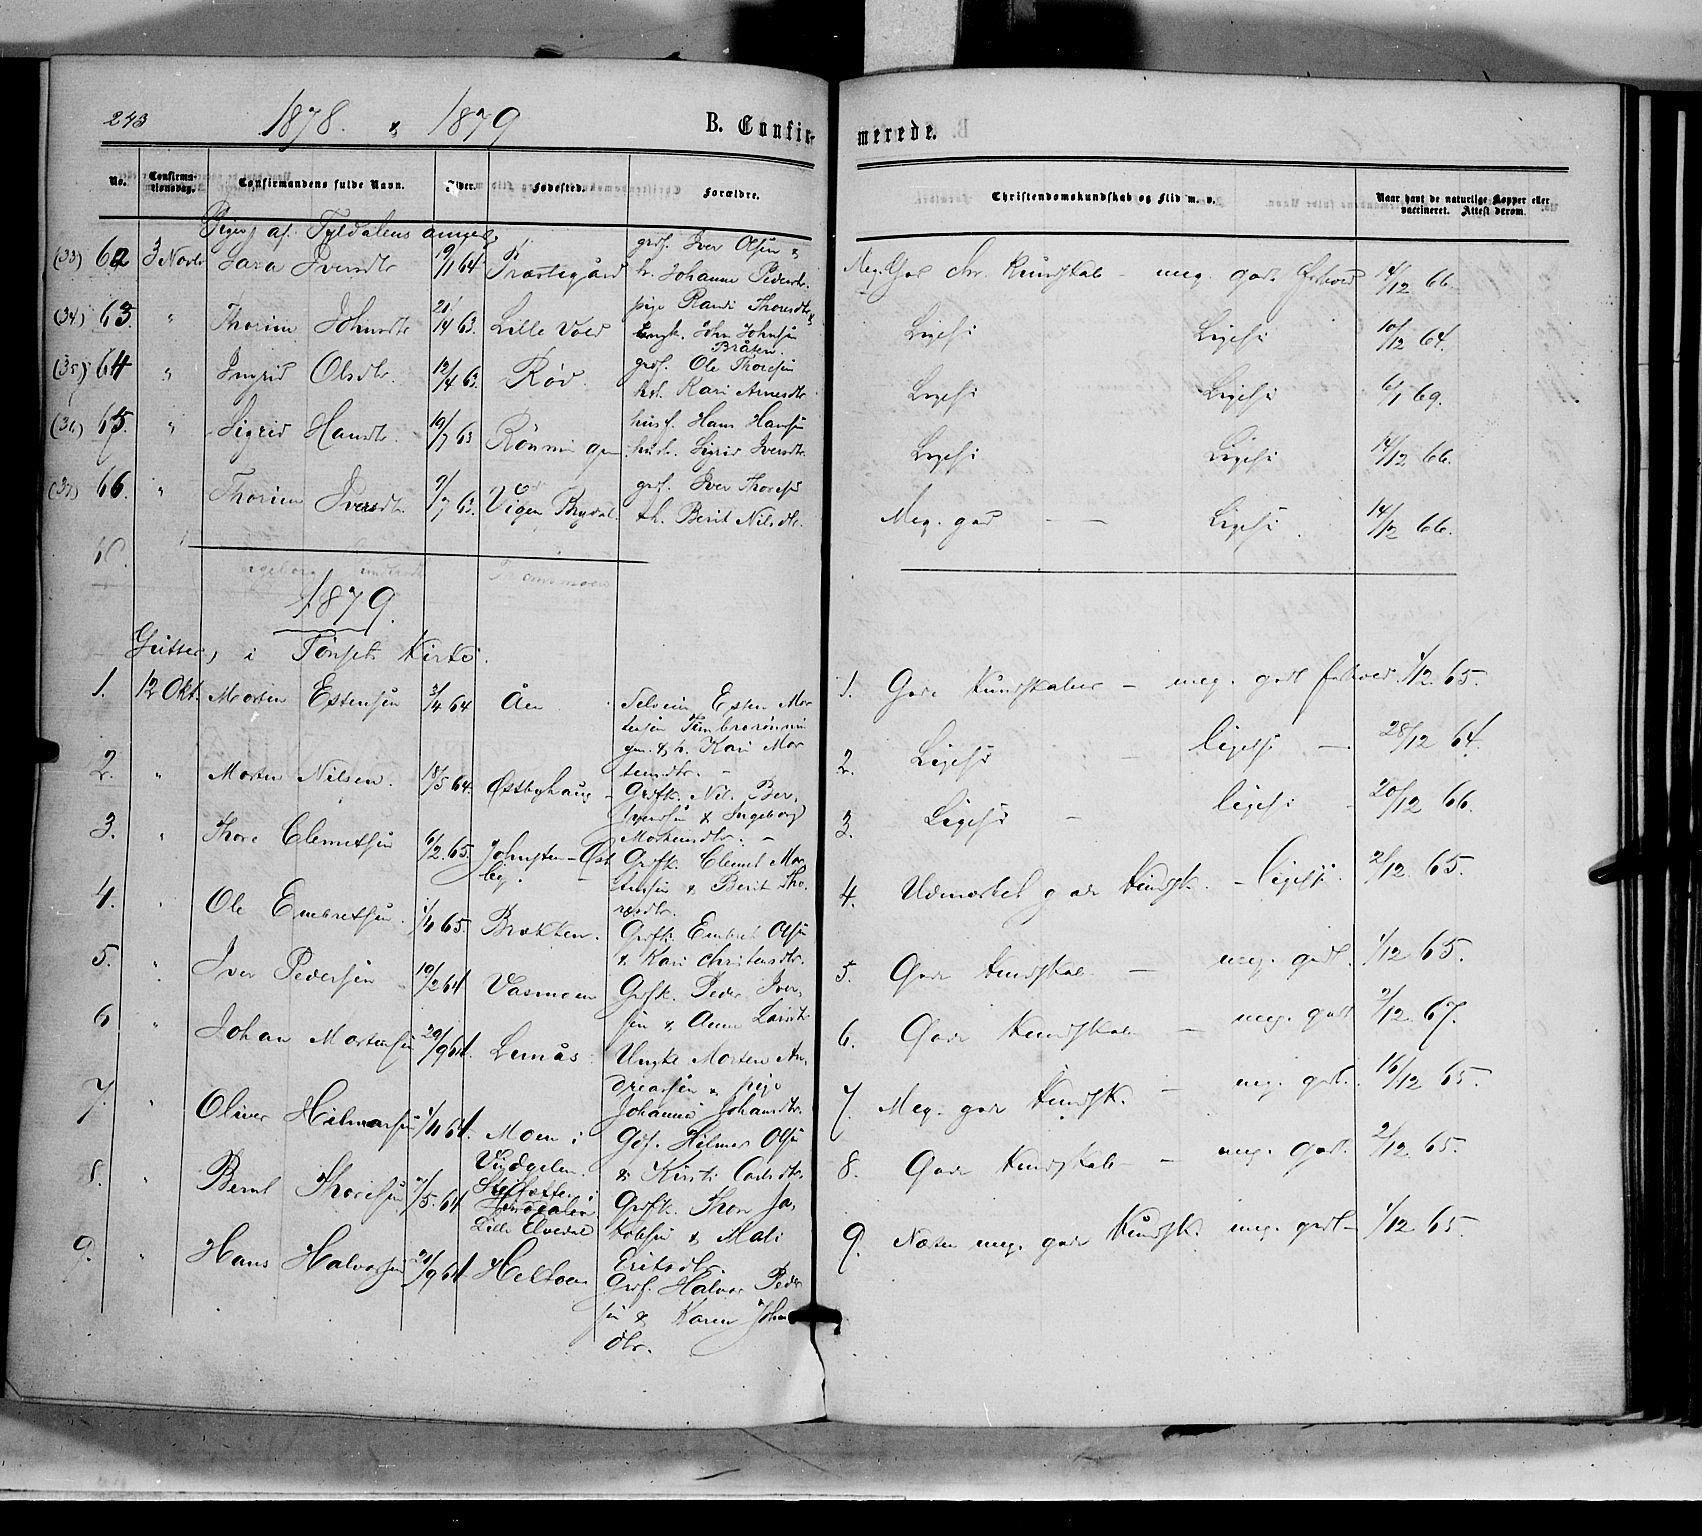 243 1878. & 1879 B. Confir-
merede.
No. Confirma-tionsdag. Confirmandens fulde Navn. Alder. Fødested. Forældre.
Christendomskundskab og Flid m. v. Naar havt de naturlige Kopper eller vaccineret. Attest derom.
Piger, af Tyldalens annex,
(33) 62 3 Novbr Iversdtr 19/1 64 Præstegård grdf. Iver Olsen & h. Johanne Pedersdtr. Meg. God chr. Kundskab - meg. godt forhold 14/12 66.
(34) 63. " Thorine Johnsdtr 21/4 63. Lille Vold pige Randi Thoresdtr & ungk. John Johnsen Bråten. Ligeså Ligeså 10/12 64.
(35) 64 " Ingrid Olsdtr. 12/4 63. Rød. grdf. Ole Thoresen hst. Kari Arnesdtr. Ligeså Ligeså 6/1 69.
(36) 65. " Sigrid Hansdtr. 19/7 63 Rønningen husf. Hans Hansen hustr. Sigrid Iversdtr. Ligeså Ligeså 14/12 66.
(37) 66. " Thorine Iversdtr. 9/7 63. Vigen Brydal. grdf. Iver Thoresen & h. Berit Nilsdtr. Meg. god - - Ligeså. 14/12 66.
1879.
Gutter, i Tønset Kirke.
1. 12 Okt. Morten Estensen 3/4 64 Åen Selveier Esten Mor-
tensen Tømbrerønnin-
gen & h. Kari Mor-
tensdtr. -
1. Gode Kundskaber - meg. godt forhold. 1/12 65.
2. " Morten Nilsen. 18/5 64. Østbyhaug - Grdfk. Nils Ber-
& Ingeborg
Mortensdtr. -
2. Ligeså - ligeså - 28/12 64.
3. " Thore Clemetsen 6/2 65. - Øst-
by. Grdfk. Clemet Mor-
tensen & Berit Tho-
resdtr.
3. Ligeså - ligeså - 20/12 66.
4. " Ole Embretsen. 1/4 65. Brækken. Grdfk. Embret Olsen
& Kari Christensdtr.
4. Udmærket gode Kundsk. - ligeså. 2/12 65.
5. " Iver Pedersen 10/2 64 Vasmoen Grdfk. Peder Iver-
sen & Anne Larsdtr.
5. Gode Kundskab. - meg. godt. 1/12 65.
6 " Johan Mortensen 29/9 64. Lunås Ungk. Morten An-
dreassen & pige
Johanne Johansdtr.
6. Gode Kundskab - meg. godt 2/12 67.
7. " Oliver Hilmarsen 1/4 64. Moen i
Gdf. Hilmar Olsen
& Kirsti
7. Meg. gode Kundsk. - meg. godt. 16/12 65.
8. " Bernt Thoresen 2/5. 64 i
Lille Elvedal
Grdfk. Thore Ja-
kobsen & Mali
Eriksdtr.
8. Gode Kundskab - meg. godt. 2/12 65.
9. " Hans Halvorsen 21/9 64 Grdf. Halvor Peder-
sen & Karen John
dtr.
9. Næsten meg. gode Kundsk. meg. godt - 1/12 65.